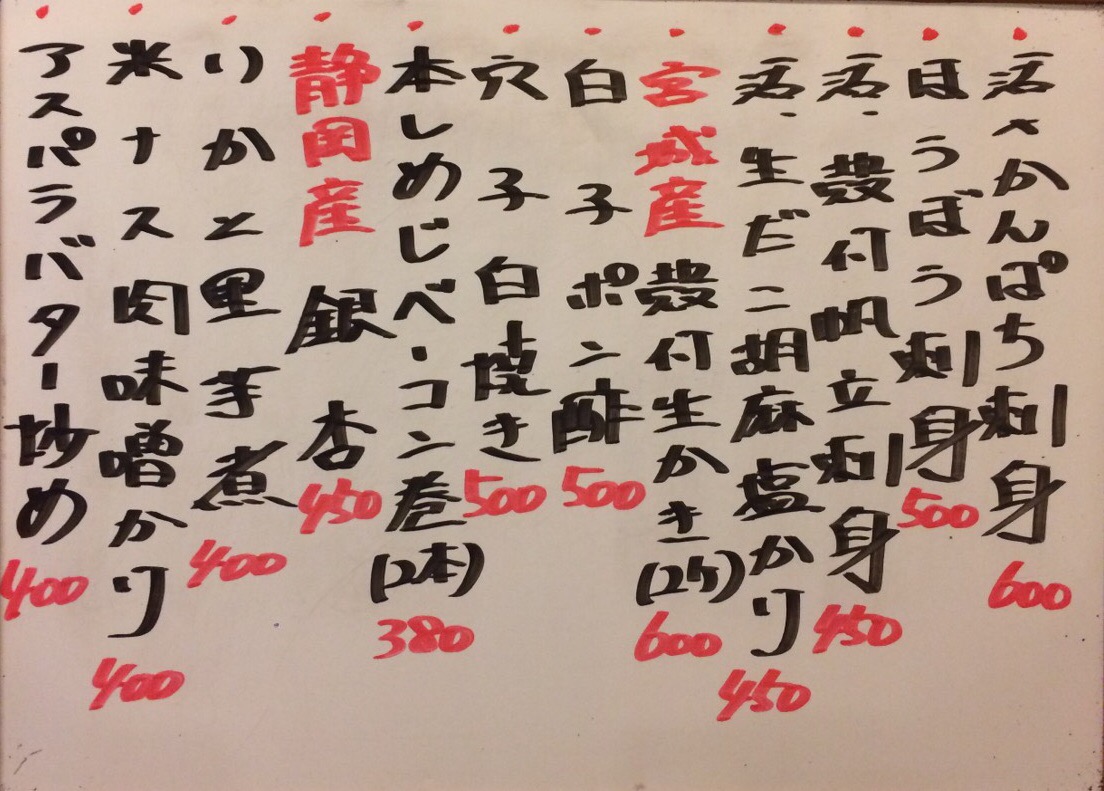 活〆かんぱち刺身 600
ほうぼう刺身 500
活・殻付帆立刺身 450
活・生だこ胡麻塩かけ 450
宮城産 殻付生かき(2ケ) 600
白子ポン酢 500
穴子白焼き 500
本しめじベーコン巻(2本) 380
静岡産 銀杏 450
いかと里芋煮 400
米ナス肉味噌かけ 400
アスパラバター炒め 400